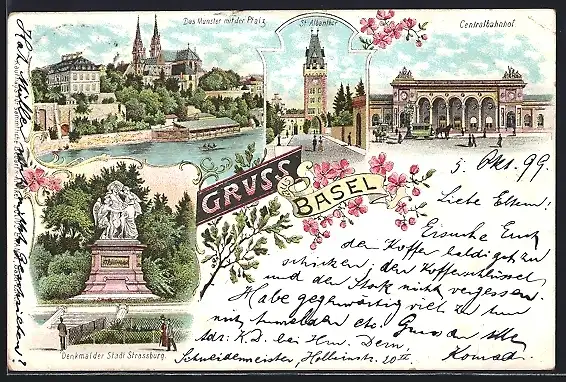 Das Münster mit der Pfalz
St. Albanthor
Centralbahnhof.
GRUSS
BASEL
Denkmal der Stadt Strassburg.
5. Okt. 99.
Liebe Eltern!
Ersuche Euch
den Koffer baldigst zu
schicken; den Kofferschlüssel
und den Stock nicht vergessen.
Habe gegenwärtig viel zu tun
mit anmelden etc. Gruss an Alle
Adr: K. D. bei Hrn. Dern, Konrad.
Schneidermeister, Holbeinstr. 20